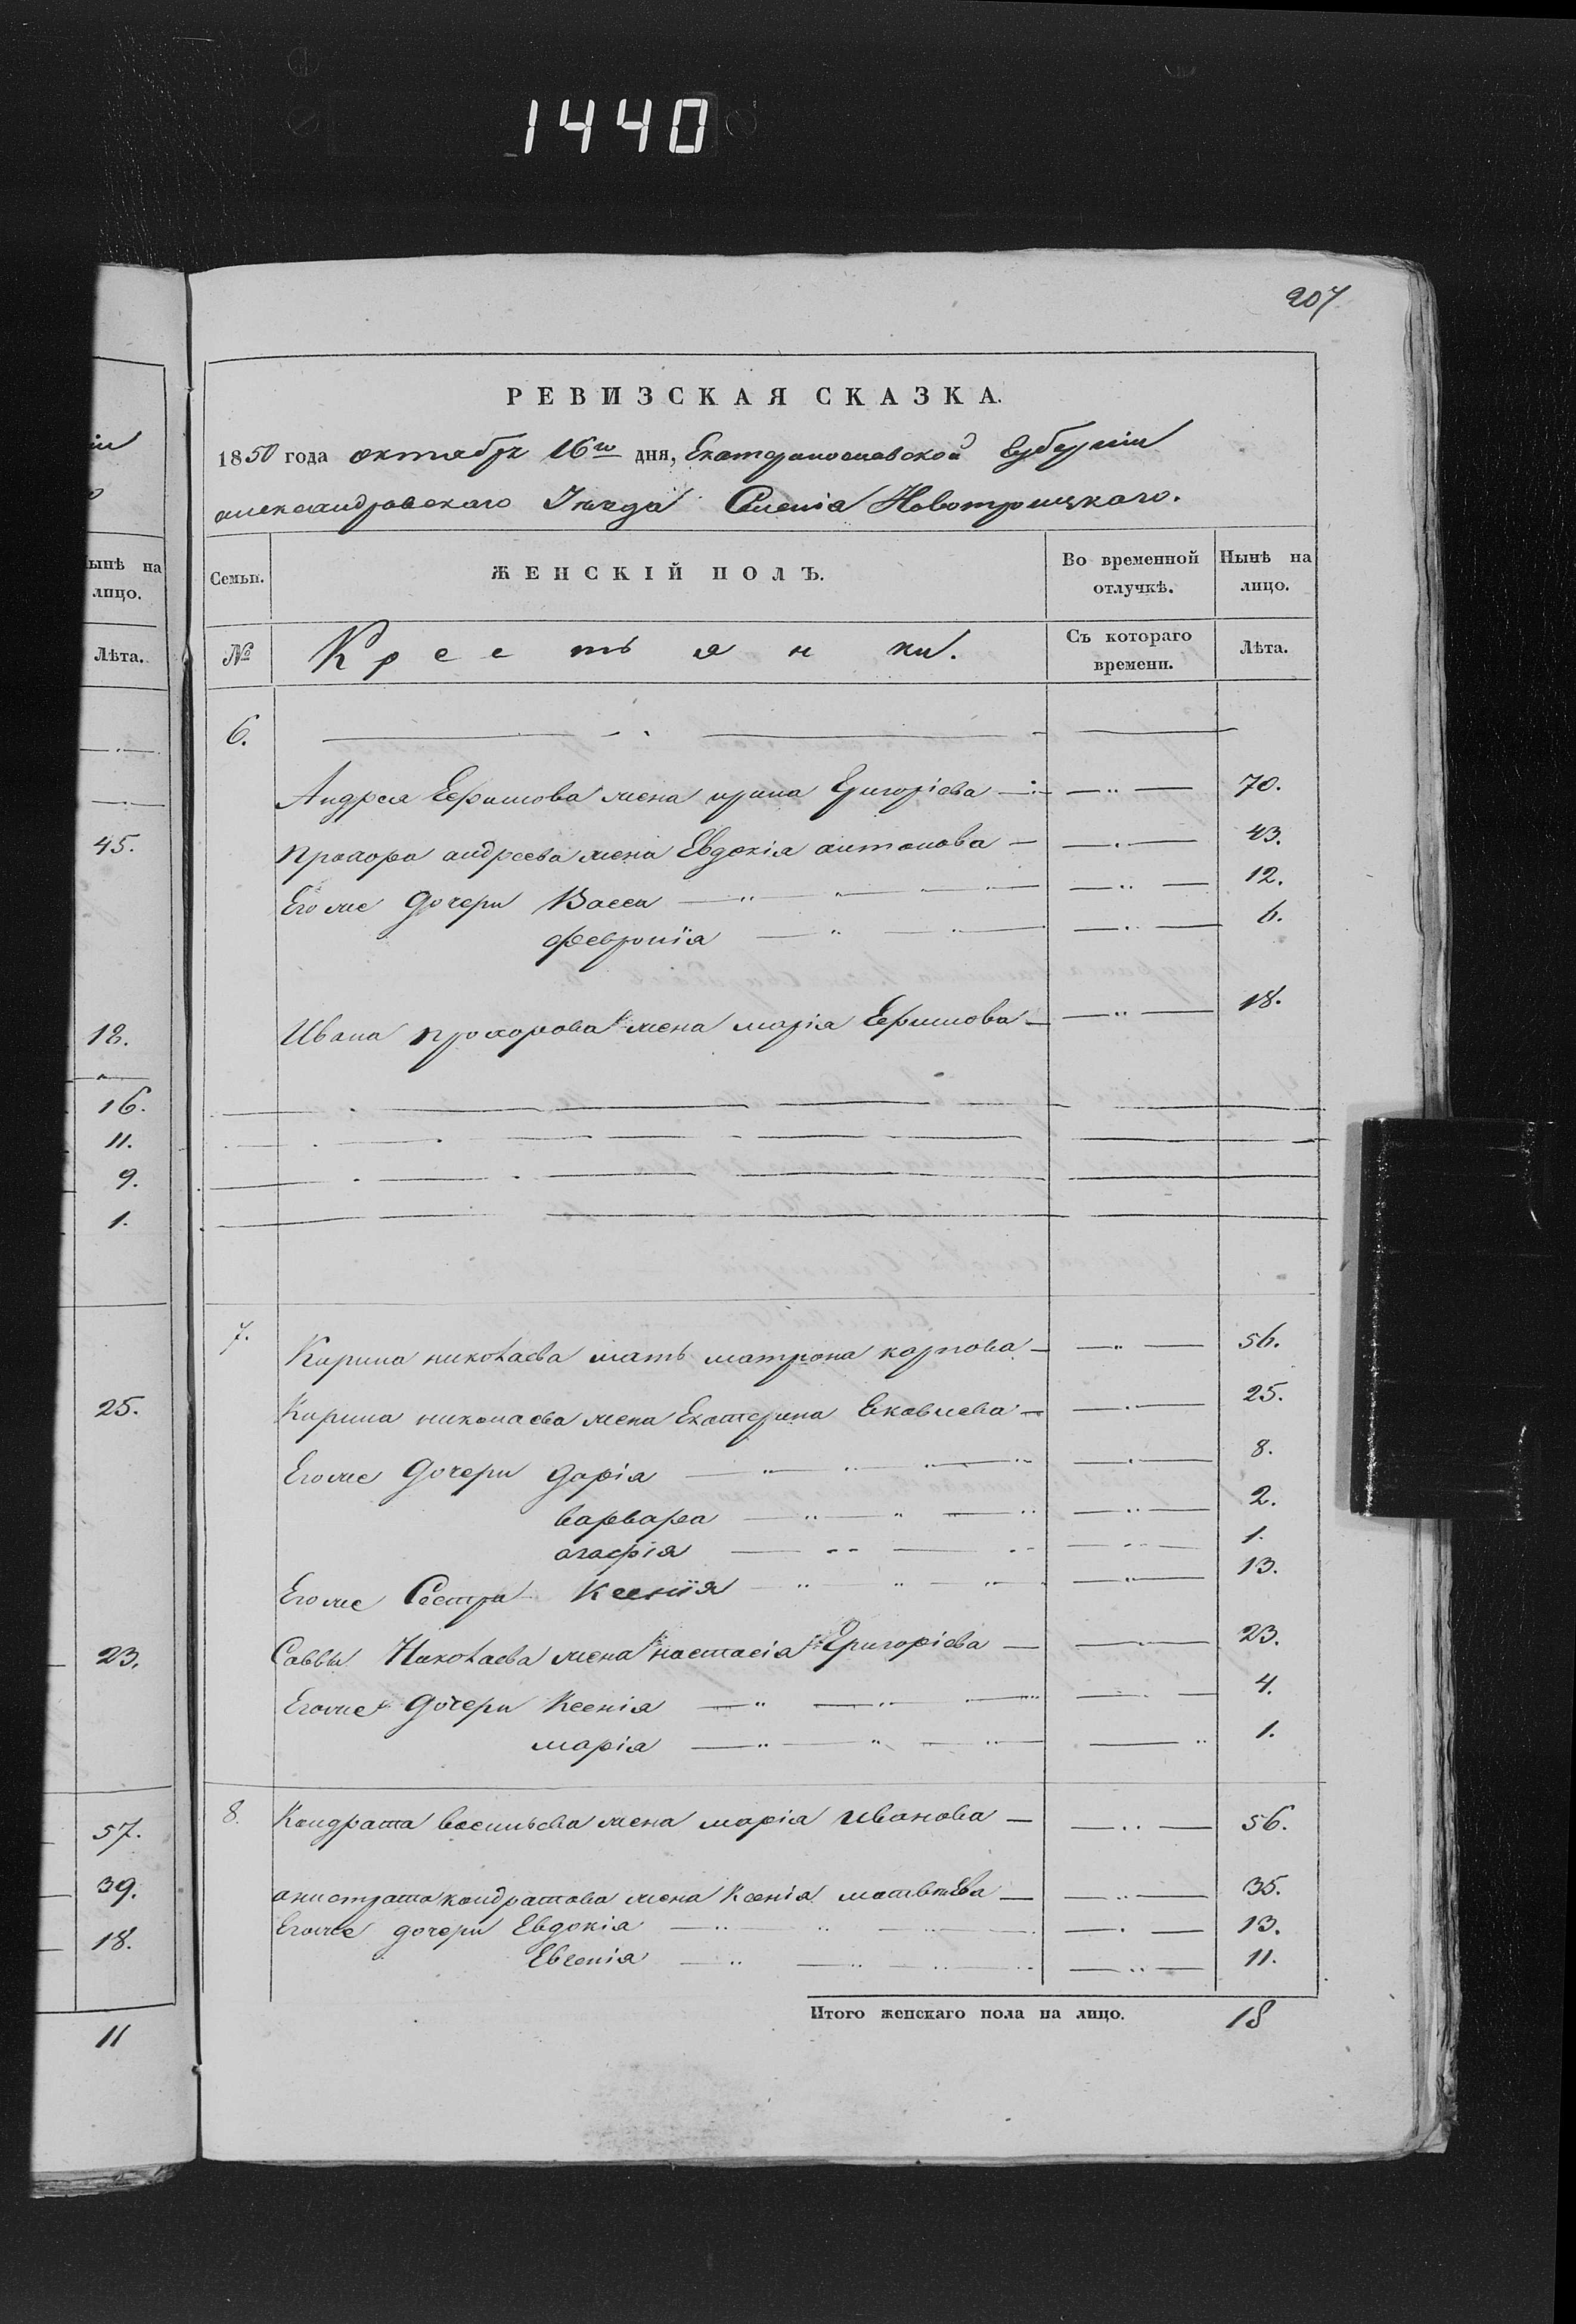 1440
207
РЕВИЗСКАЯ СКАЗКА.
1850 года октября 16го дня, Екатеринославской Губерніи
александровскаго Уезда Селенія Новотроицкаго.
Семьи. ЖЕНСКІЙ ПОЛЪ. Во временной отлучкѣ. Нынѣ на лицо.
№ Крестьянки. Съ котораго времени. Лѣта.
6.
Андрея Ефимова жена ирина Григоріева 70.
прохора андреева жена Евдокія антонова 43.
Его же дочери Васса 12.
февронія 6.
Ивана прохорова жена марія Ефимова 18.
7. Кирила николаева мать матрона карпова 56.
Кирила николаева жена Екатерина Яковлева 25.
Его же дочери дарія 8.
варвара 2.
агафія 1.
Его же Сестра Ксенія 13.
Саввы Николаева жена настасія Григоріева 23.
Его же дочери Ксенія 4.
марія 1.
8. Кондрата васильева жена марія иванова 56.
анистрата кондратова жена Ксенія матвѣева 35.
Его же дочери Евдокія 13.
Евгенія 11.
Итого женскаго пола на лицо. 18
ынѣ на
лицо.
Лѣта.
45.
18.
16.
11.
9.
1.
25.
23.
57.
39.
18.
11